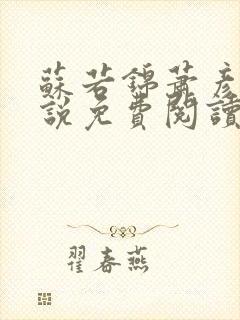 蘇若錦蕭彥
說免費閱讀
翟春燕